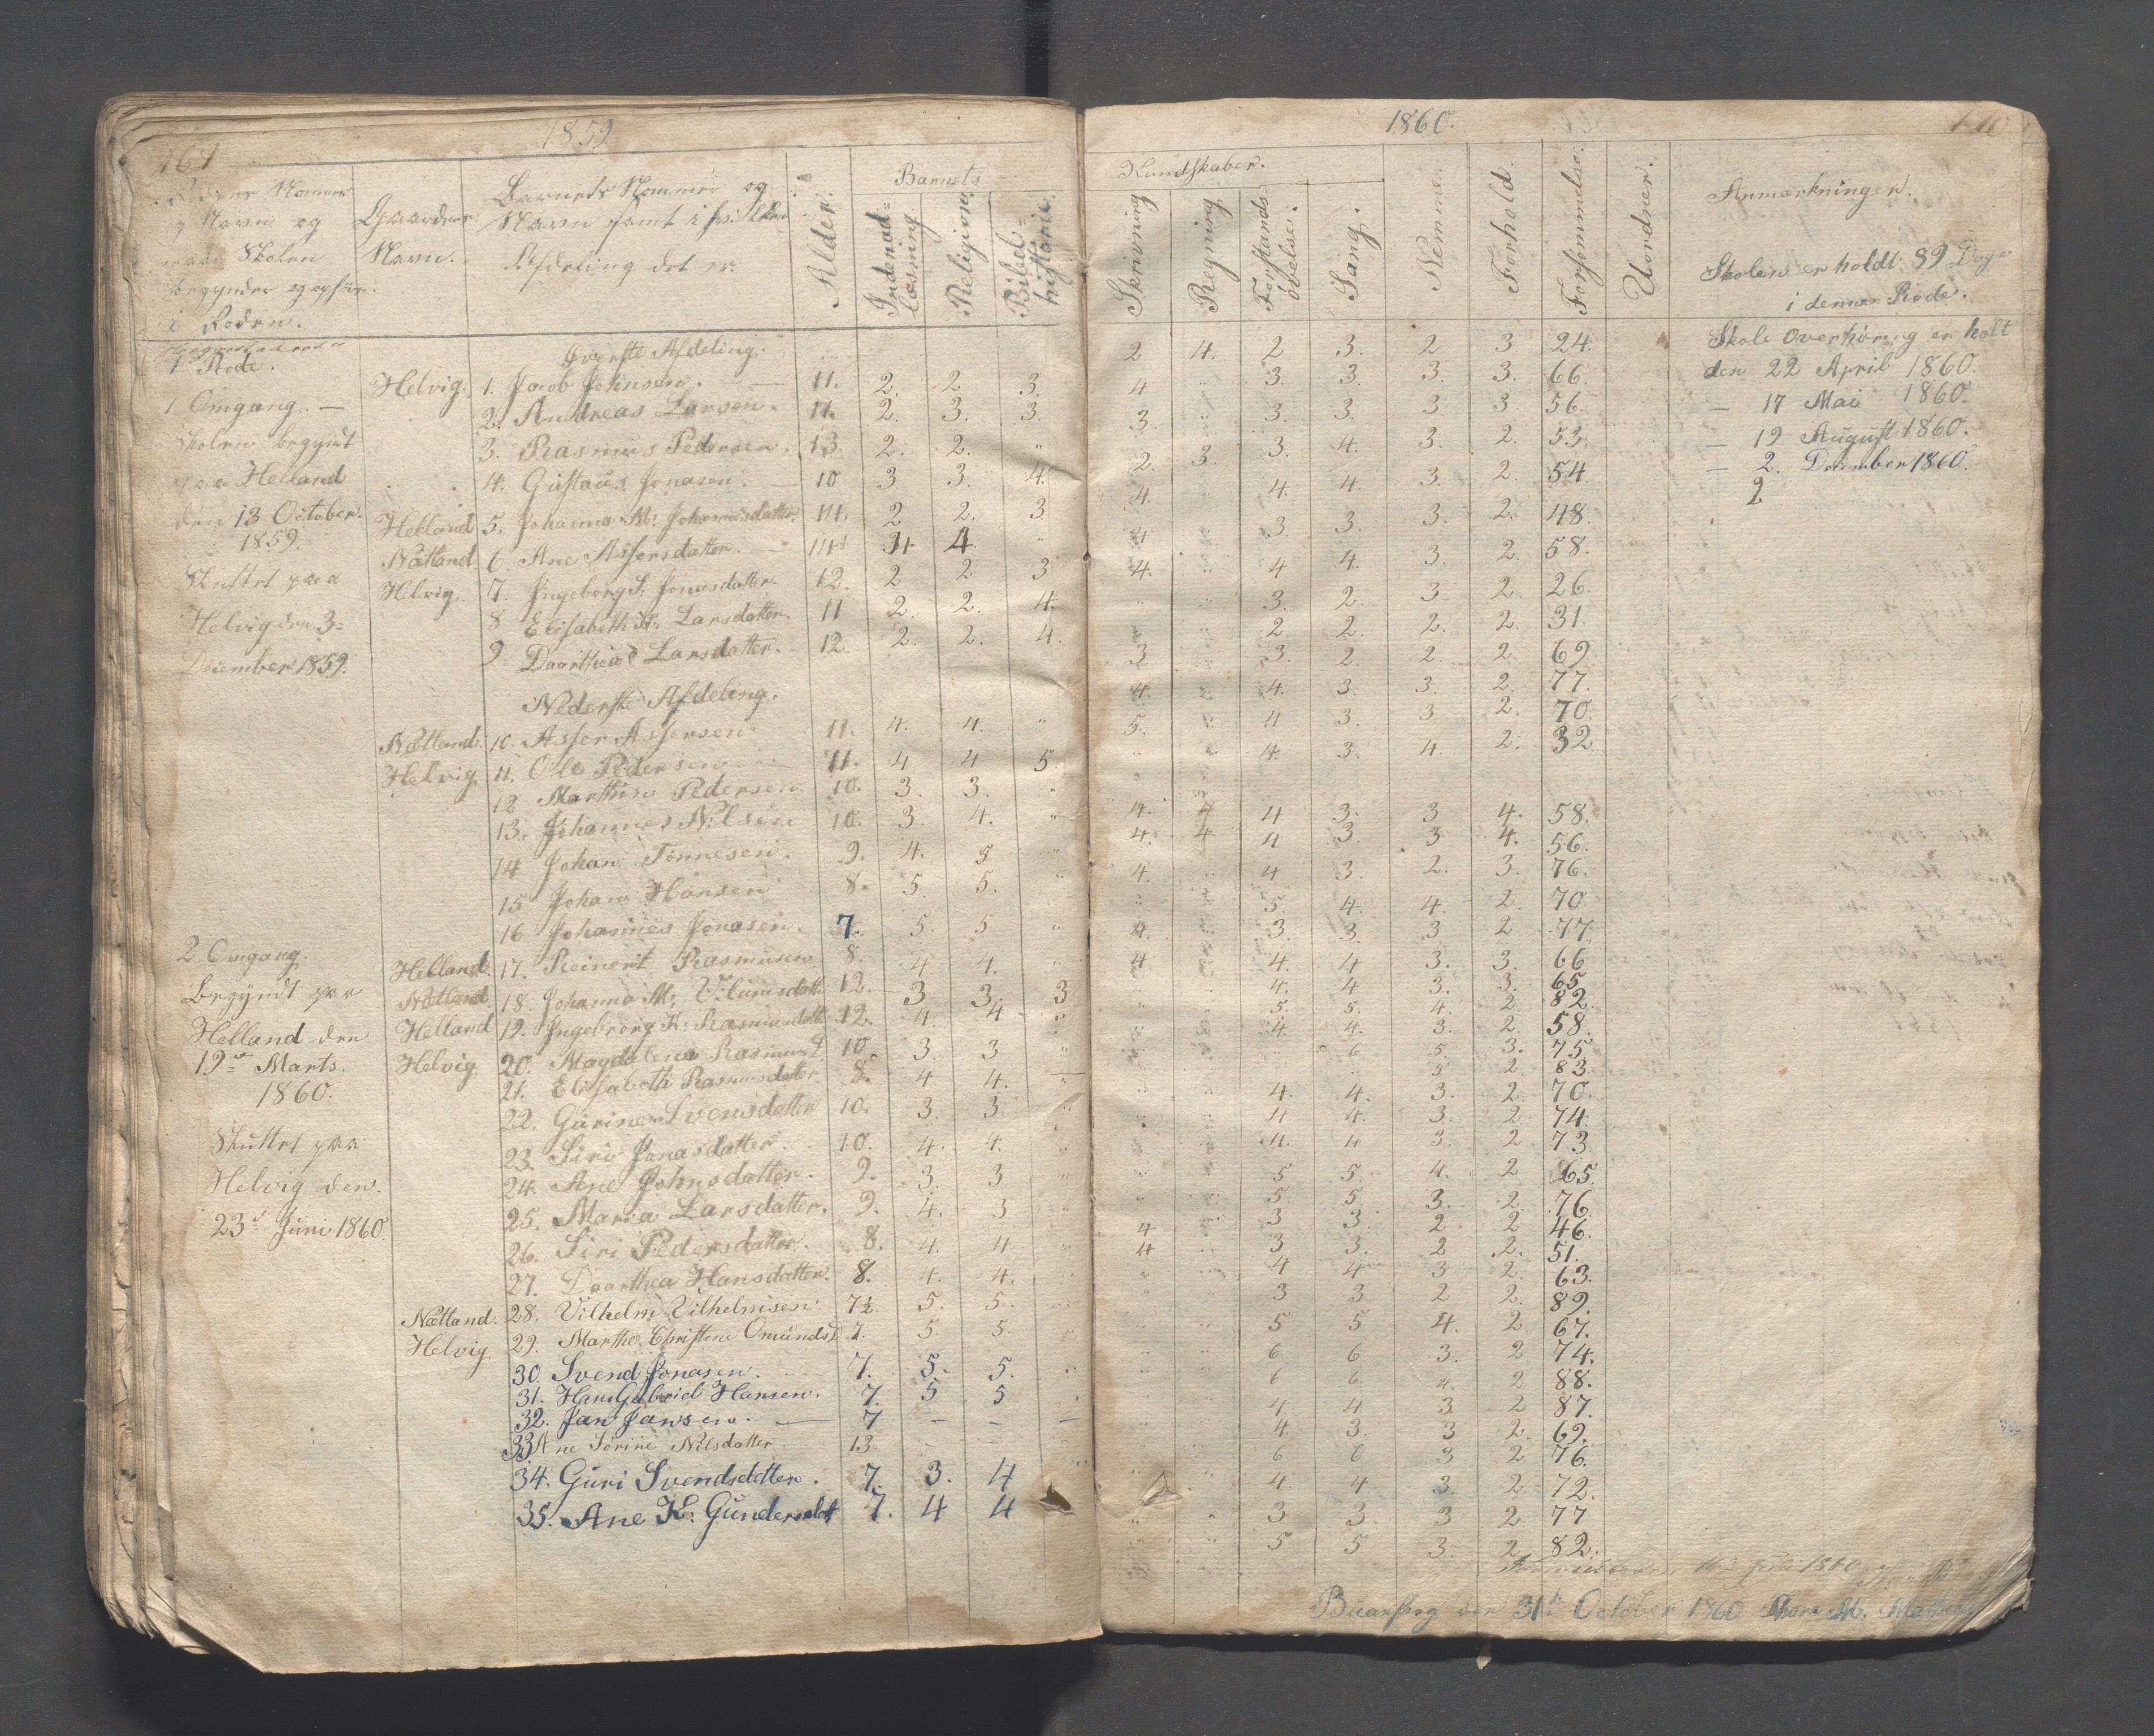 1859
Navn og
Skolen
begynder og ophør.
i Roden.
Gaardens
Navn.
Barnets Nommer og
Navn samt i hvilken
Afdeling det er.
Alder.
Barnets
Indenad-
læsning
Religion.
Bibel-
historie.
1 Rode.
1 Omgang. —
Skolen begyndt
paa Helland
den 13 October.
1859.
Sluttet paa
Helvig den 3-
December 1859.
2 Omgang.
begyndt paa
Helland den
19de Marts.
1860.
Sluttet paa
Helvig den
23de Juni 1860
Øverste Afdeling.
Helvig. 1. Jacob Johnsen. — 11. 2. 2 3.
2. Andreas Larsen. 11. 2. 3. 3
3. Rasmus Pedersen. 13. 2. 2. "
4. Gustaus Jonasen. — 10 3 3. 4.
Helland 5. Johanna M: Johannesdatter. 14. 2 2. 3
Nætland. 6. Ane Assersdatter. 4 "
Helvig. 7. Ingeborg S. Jonasdatter. 12. 2 2 3
8 Elisabeth K: Larsdatter 11 2. 2. 4.
9. Daarthea Larsdatter. 12. 2. 2. 4.
Nederste Afdeling.
Nætland. 10. Asser Assersen. 11. 4. 4. "
Helvig. 11. Ole Pedersen 11. 4 4 5.
12 Marthin Pedersen 10. 3. 3. "
13. Johannes Nilsen 10. 3. 4. "
14 Johan Tønnesen. 9. 4. 5 "
15 Johan Hansen 8. 5. 5. "
16 Johannes Jonasen. 7. 5. 5 "
Helland. 17. Reinert Rasmusen 8. 4 4. "
Nætland. 18. Johanna M: 12. 3 3. 3
Helland 19. Ingeborg K: Rasmusdatt 12. 4. 4 "
Helvig 20. Magdalena Rasmusd. 10 3. 3 "
21. Elisabeth Rasmusdatter 8. 4 4. —
22. Gurine Svensdatter 10. 3. 3 "
23. Siri Jonasdatter. 10. 4. 4. "
24. Ane Johnsdatter. 9. 3. 3 "
25. Maria Larsdatter. 9. 4. 3 "
26. Siri Pedersdatter. 8. 4. 4 "
27. Daarthea Hansdatter. 8. 4. 4. "
Nætland. 28. Vilhelm Vilhelmsen. 7½ 5. 5. "
Helvig 29. Marthe Christine Omunds 7. 5. 5. "
30. Svend Jonasen. 7. 5. 5. "
31. Hans Gabriel Hansen. 7. 5 5 .
32. Jan Jansen. — 7 – – —
33. Ane Sørine Nilsdatter 13
34. Guri Svendsdatter. 7. 3. 4
35. Ane K: Gundersdtt 7. 4 4
1860.
Kundskaber.
Skrivning
Regning
Forstands-
øvelse.
Sang.
Nemme.
Forhold.
Forsømmelse.
Uordner.
Anmærkninger.
Skolen er holdt 89 Dage
i denne Rode.
Skole overhøring er holt
den 22 April 1860.
— 17 Mai 1860.
— 19 August 1860.
— 2. December 1860.
2
2 4. 2 3. 2 3 24.
4 " 3. 3. 3. 3. 66.
3. " 3. 3. 3. 3 56.
2. 3. 3. 4. 3. 2. 53.
4. " 4. 4. 3. 2 54.
4 " 3 3. 3. 2. 48.
4. " 4 4. 3. 2. 58.
" " 3. 2. 3 2. 26.
" " 2. 2. 2. 2. 31.
3 " 3. 2. 2. 2 69.
4. " 4. 3. 3. 2. 77.
5. " 4 3. 3 2. 70.
" " 4. 3. 4. 2. 32.
4. 4 4 3. 3 4. 58.
4. 4 4 3 3 4. 56.
4. " 4 3. 2. 3. 76.
" " 5 4. 4. 2. 70.
4. " 3. 3. 3 2 77.
4 " 4. 4 3. 3. 66
" " 4. 4 3. 3. 65
" " 5. 5. 4. 2 82.
" " 4. 4. 3. 2. 58.
" " " 6 5. 3. 75
3 2. 83.
" " 4. 4. 3. 2. 70.
" " 4 4. 3. 2 74.
" " 4. 4 3. 2 73.
" " 5 5. 4. 2 65.
" " 5. 5 3. 2. 76.
4 " 3 3. 2 2 46.
4 " 3 3. 2 2. 51.
" " 4 4 3 2. 63.
" " 3 3 2 2. 89.
" " 5 5 4. 2. 67.
" " 6 6 3. 2 74.
" " 6 6 4. 2 88.
" " 4 4 3 2 87.
" " 4 3. 3 2. 69.
" " 6 6 3 2. 76.
" " 4. 4 3. 2 72.
" " 3 3. 3 2 77
" " 5 5 3. 2 82.
Buarheg den 31te October 1860